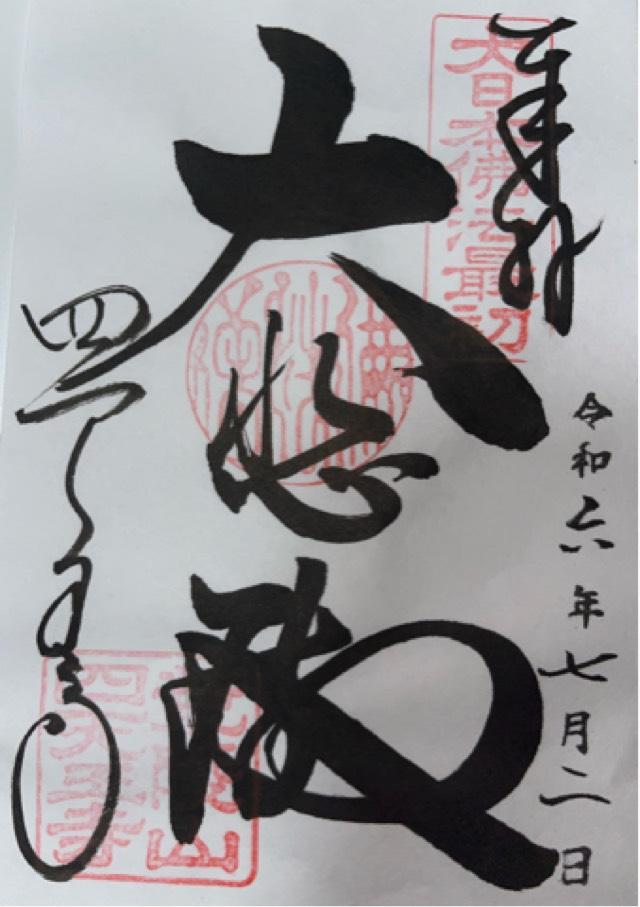 奉拝
大日本佛法最初
令和六年七月二日
大悲殿
四天王寺
荒陵山
四天王寺